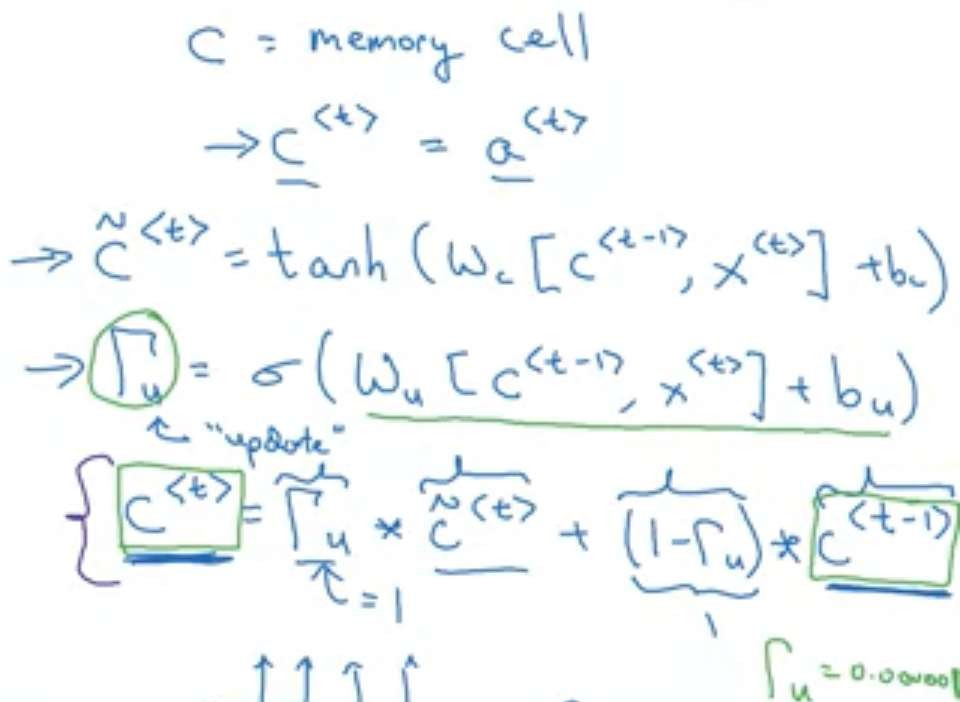 C = memory cell
→ C^<t> = a^<t>
→ C̃^<t> = tanh (W_c [C^<t-1>, x^<t>] + b_c)
→ Γ_u = σ (W_u [C^<t-1>, x^<t>] + b_u)
"update"
C^<t> = Γ_u * C̃^<t> + (1-Γ_u) * C^<t-1>
= 1
1
Γ_u = 0.00000